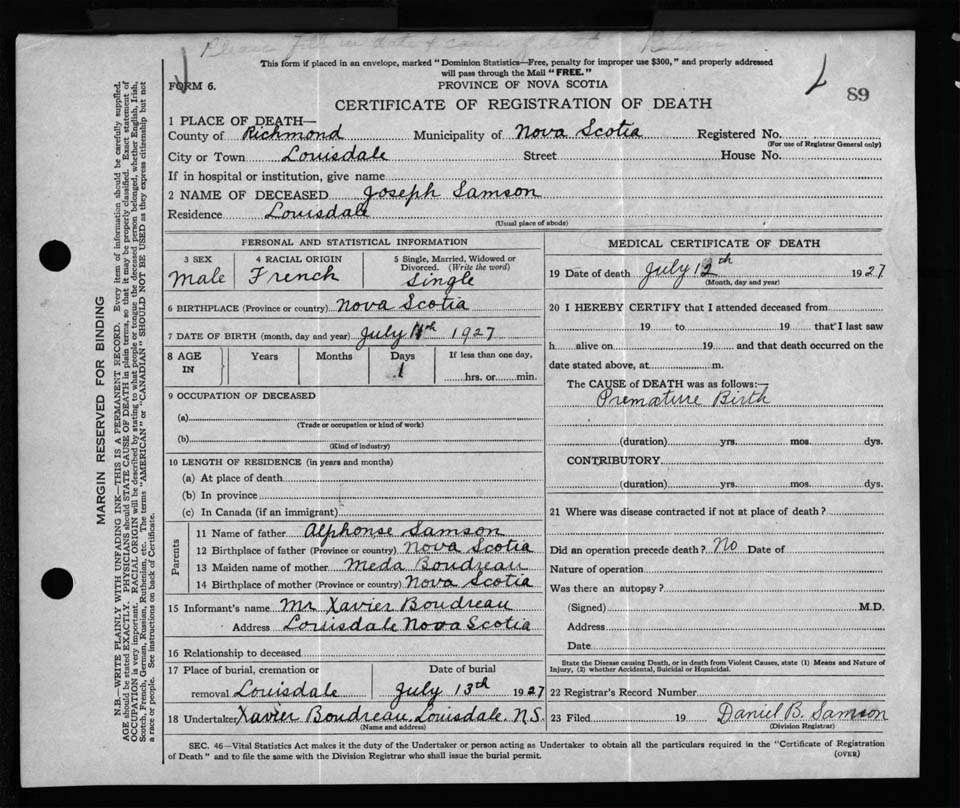 Please fill in date & cause of death Return
This form if placed in an envelope, marked "Dominion Statistics—Free, penalty for improper use $300," and properly addressed
will pass through the Mail "FREE."
FORM 6.
PROVINCE OF NOVA SCOTIA
89
CERTIFICATE OF REGISTRATION OF DEATH
1 PLACE OF DEATH—
County of Richmond Municipality of Nova Scotia Registered No.
(For use of Registrar General only)
City or Town Louisdale Street House No.
If in hospital or institution, give name
2 NAME OF DECEASED Joseph Samson
Residence Louisdale
(Usual place of abode)
PERSONAL AND STATISTICAL INFORMATION
3 SEX
Male
4 RACIAL ORIGIN
French
5 Single, Married, Widowed or
Divorced. (Write the word)
Single
6 BIRTHPLACE (Province or country) Nova Scotia
7 DATE OF BIRTH (month, day and year) July 11th 1927
8 AGE
IN
Years
Months
Days
1
If less than one day,
hrs. or min.
9 OCCUPATION OF DECEASED
(a)
(Trade or occupation or kind of work)
(b)
(Kind of industry)
10 LENGTH OF RESIDENCE (in years and months)
(a) At place of death
(b) In province
(c) In Canada (if an immigrant)
Parents
11 Name of father Alphonse Samson
12 Birthplace of father (Province or country) Nova Scotia
13 Maiden name of mother Meda Boudreau
14 Birthplace of mother (Province or country) Nova Scotia
15 Informant's name Mr Xavier Boudreau
Address Louisdale Nova Scotia
16 Relationship to deceased
17 Place of burial, cremation or
removal Louisdale
Date of burial
July 13th 1927
18 Undertaker Xavier Boudreau, Louisdale. N.S.
(Name and address)
MEDICAL CERTIFICATE OF DEATH
19 Date of death July 12th 1927
(Month, day and year)
20 I HEREBY CERTIFY that I attended deceased from
19 to 19 that I last saw
h alive on 19 and that death occurred on the
date stated above, at m.
The CAUSE of DEATH was as follows:—
Premature Birth
(duration) yrs. mos. dys.
CONTRIBUTORY
(duration) yrs. mos. dys.
21 Where was disease contracted if not at place of death?
Did an operation precede death? No Date of
Nature of operation
Was there an autopsy?
(Signed) M.D.
Address
Date
State the Disease causing Death, or in death from Violent Causes, state (1) Means and Nature of
Injury, (2) whether Accidental, Suicidal or Homicidal.
22 Registrar's Record Number
23 Filed 19 Daniel B. Samson
(Division Registrar)
SEC. 46—Vital Statistics Act makes it the duty of the Undertaker or person acting as Undertaker to obtain all the particulars required in the "Certificate of Registration
of Death" and to file the same with the Division Registrar who shall issue the burial permit.
(OVER)
MARGIN RESERVED FOR BINDING
N.B.—WRITE PLAINLY WITH UNFADING INK—THIS IS A PERMANENT RECORD. Every item of information should be carefully supplied.
AGE should be stated EXACTLY. PHYSICIANS should STATE CAUSE OF DEATH in plain terms, so that it may be properly classified. Exact statement of
OCCUPATION is very important. RACIAL ORIGIN will be described by stating to what people or tongue the deceased person belonged, whether English, Irish,
Scotch, French, German, Russian, Ruthenian, etc. The terms "AMERICAN" or "CANADIAN" SHOULD NOT BE USED as they express citizenship but not
a race or people. See instructions on back of Certificate.